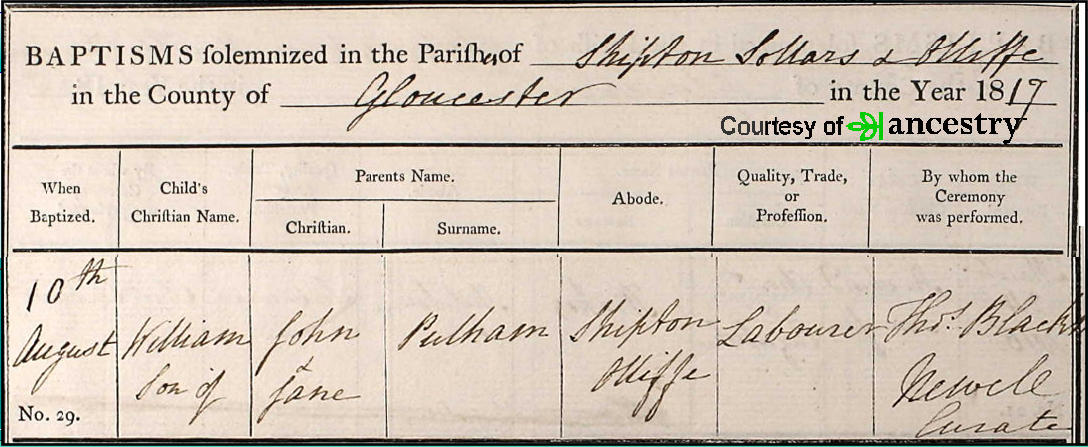 BAPTISMS ſolemnized in the Pariſhes of Shipton Sollars & Olliffe
in the County of Gloucester in the Year 1817
Courtesy of ancestry
When Baptized.
Child's Chriſtian Name.
Parents Name.
Chriſtian.
Surname.
Abode.
Quality, Trade, or Profeſſion.
By whom the Ceremony was performed.
10th
August William John Pulham Shipton Labourer Thos. Black
Son of & Jane Olliffe Newell
No. 29. Curate